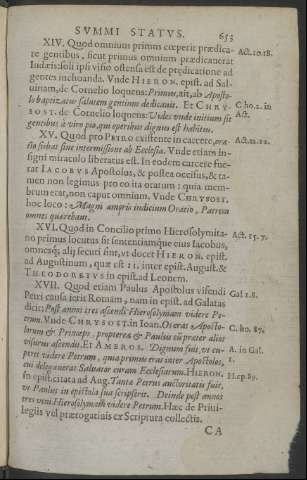 SVMMI STATVS. 653
XIV. Quod omnium primus cœperit prædica-
re gentibus, sicut primus omnium prædicauerat Act. 10. 18.
Iudæis: soli ipsi visio ostensa est de prędicatione ad
gentes inchoanda. Vnde HIERON. epist. ad Sal-
uinam, de Cornelio loquens: Primus, ait, ab Aposto-
lo baptizatus salutem gentium dedicauit. Et CHRY- C ho. 2. in
SOST. de Cornelio loquens: Vides vnde initium sit Act.
gentibus à viro pio, qui operibus dignus est habitus.
XV. Quod pro PETRO existente in carcere, ora- Act. 12. 12.
tio fiebat sine intermissione ab Ecclesia. Vnde etiam in-
signi miraculo liberatus est. In eodem carcere fue-
rat IACOBVS Apostolus, & postea occisus, & ta-
men non legimus pro eo ita oratum: quia mem-
brum erat, non caput omnium. Vnde CHRYSOST.
hoc loco: Magni amoris indicium Oratio, Patrem
omnes quærebant.
XVI. Quod in Concilio primo Hierosolymita- Act. 15. 7.
no primus locutus sit sententiamque eius Iacobus,
omnesq́; alij secuti sint, vt docet HIERON. epist.
ad Augustinum, quæ est 11. inter epist. August. &
THEODORETVS in epist. ad Leonem.
XVII. Quod etiam Paulus Apostolus visendi Gal 1. 8.
Petri causa ierit Romam, nam in epist. ad Galatas
dicit: Post annos tres ascendi Hierosolymam videre Pe-
trum. Vnde CHRYSOST. in Ioan. Os erat Aposto- C. ho. 87.
lorum & Princeps, propterea & Paulus eū præter alios
visurus ascendit. Et AMBROS. Dignum fuit, vt cu- A. in Gal.
peret videre Petrum, quia primus erat inter Apostolos, 1.
cui delegauerat Saluator curam Ecclesiarum. HIERON. H. ep. 89.
in epist. citata ad Aug. Tantæ Petrus auctoritatis fuit,
vt Paulus in epistola sua scripserit. Deinde post annos
tres veni Hierosolymam videre Petrum. Hæc de Priui-
legiis vel prærogatiuis ex Scriptura collectis.
CA